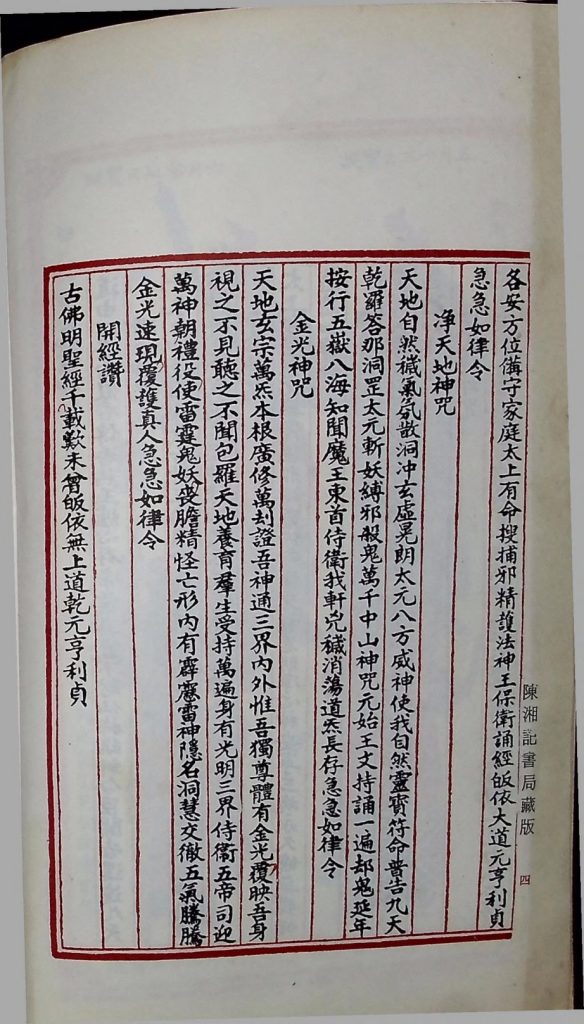 各安方位備守家庭太上有命搜捕邪精護法神王保衛誦經皈依大道元亨利貞
急急如律令
淨天地神咒
天地自然穢氣氛散洞冲玄虛晃朗太元八方威神使我自然靈寶符命普告九天
乾羅答那洞罡太元斬妖縛邪殺鬼萬千中山神咒元始王文持誦一遍却鬼延年
按行五嶽八海知聞魔王束首侍衛我軒兇穢消蕩道炁長存急急如律令
金光神咒
天地玄宗萬炁本根廣修萬刦證吾神通三界內外惟吾獨尊體有金光覆映吾身
視之不見聽之不聞包羅天地養育羣生受持萬遍身有光明三界侍衛五帝司迎
萬神朝禮役使雷霆鬼妖喪膽精怪亡形內有霹靂雷神隱名洞慧交徹五氣騰騰
金光速現覆護真人急急如律令
開經讚
古佛明聖經千載歎未曾皈依無上道乾元亨利貞
陳湘記書局藏版
四